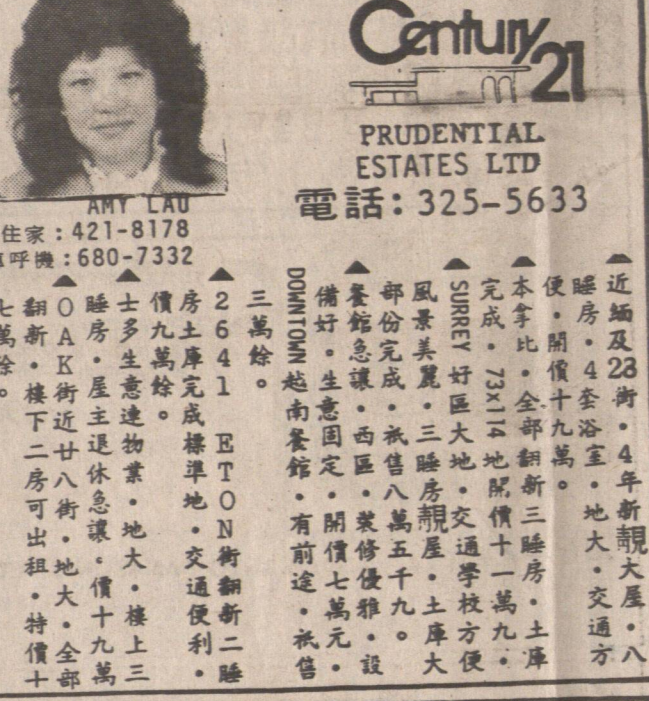 Century 21
PRUDENTIAL
ESTATES LTD
電話:325-5633
AMY LAU
住家:421-8178
呼機:680-7332
▲近緬及23街・4年新靚大屋・八
睡房・4套浴室・地大・交通方
便・開價十九萬。
▲本拿比・全部翻新三睡房・土庫
完成・73x114地開價十一萬九・
▲SURREY好區大地・交通學校方便
風景美麗・三睡房靚屋・土庫大
部份完成・祇售八萬五千九。
▲餐館急讓・西區・裝修優雅・設
備好。生意固定・開價七萬元・
DOWNTOWN越南餐館・有前途・祇售
三萬餘。
▲2641 ETON街翻新二睡
房土庫完成標準地・交通便利・
價九萬餘。
▲士多生意連物業・地大・樓上三
睡房・屋主退休急讓。價十九萬
▲OAK街近廿八街・地大・全部
翻新・樓下二房可出租・特價十
七萬餘。